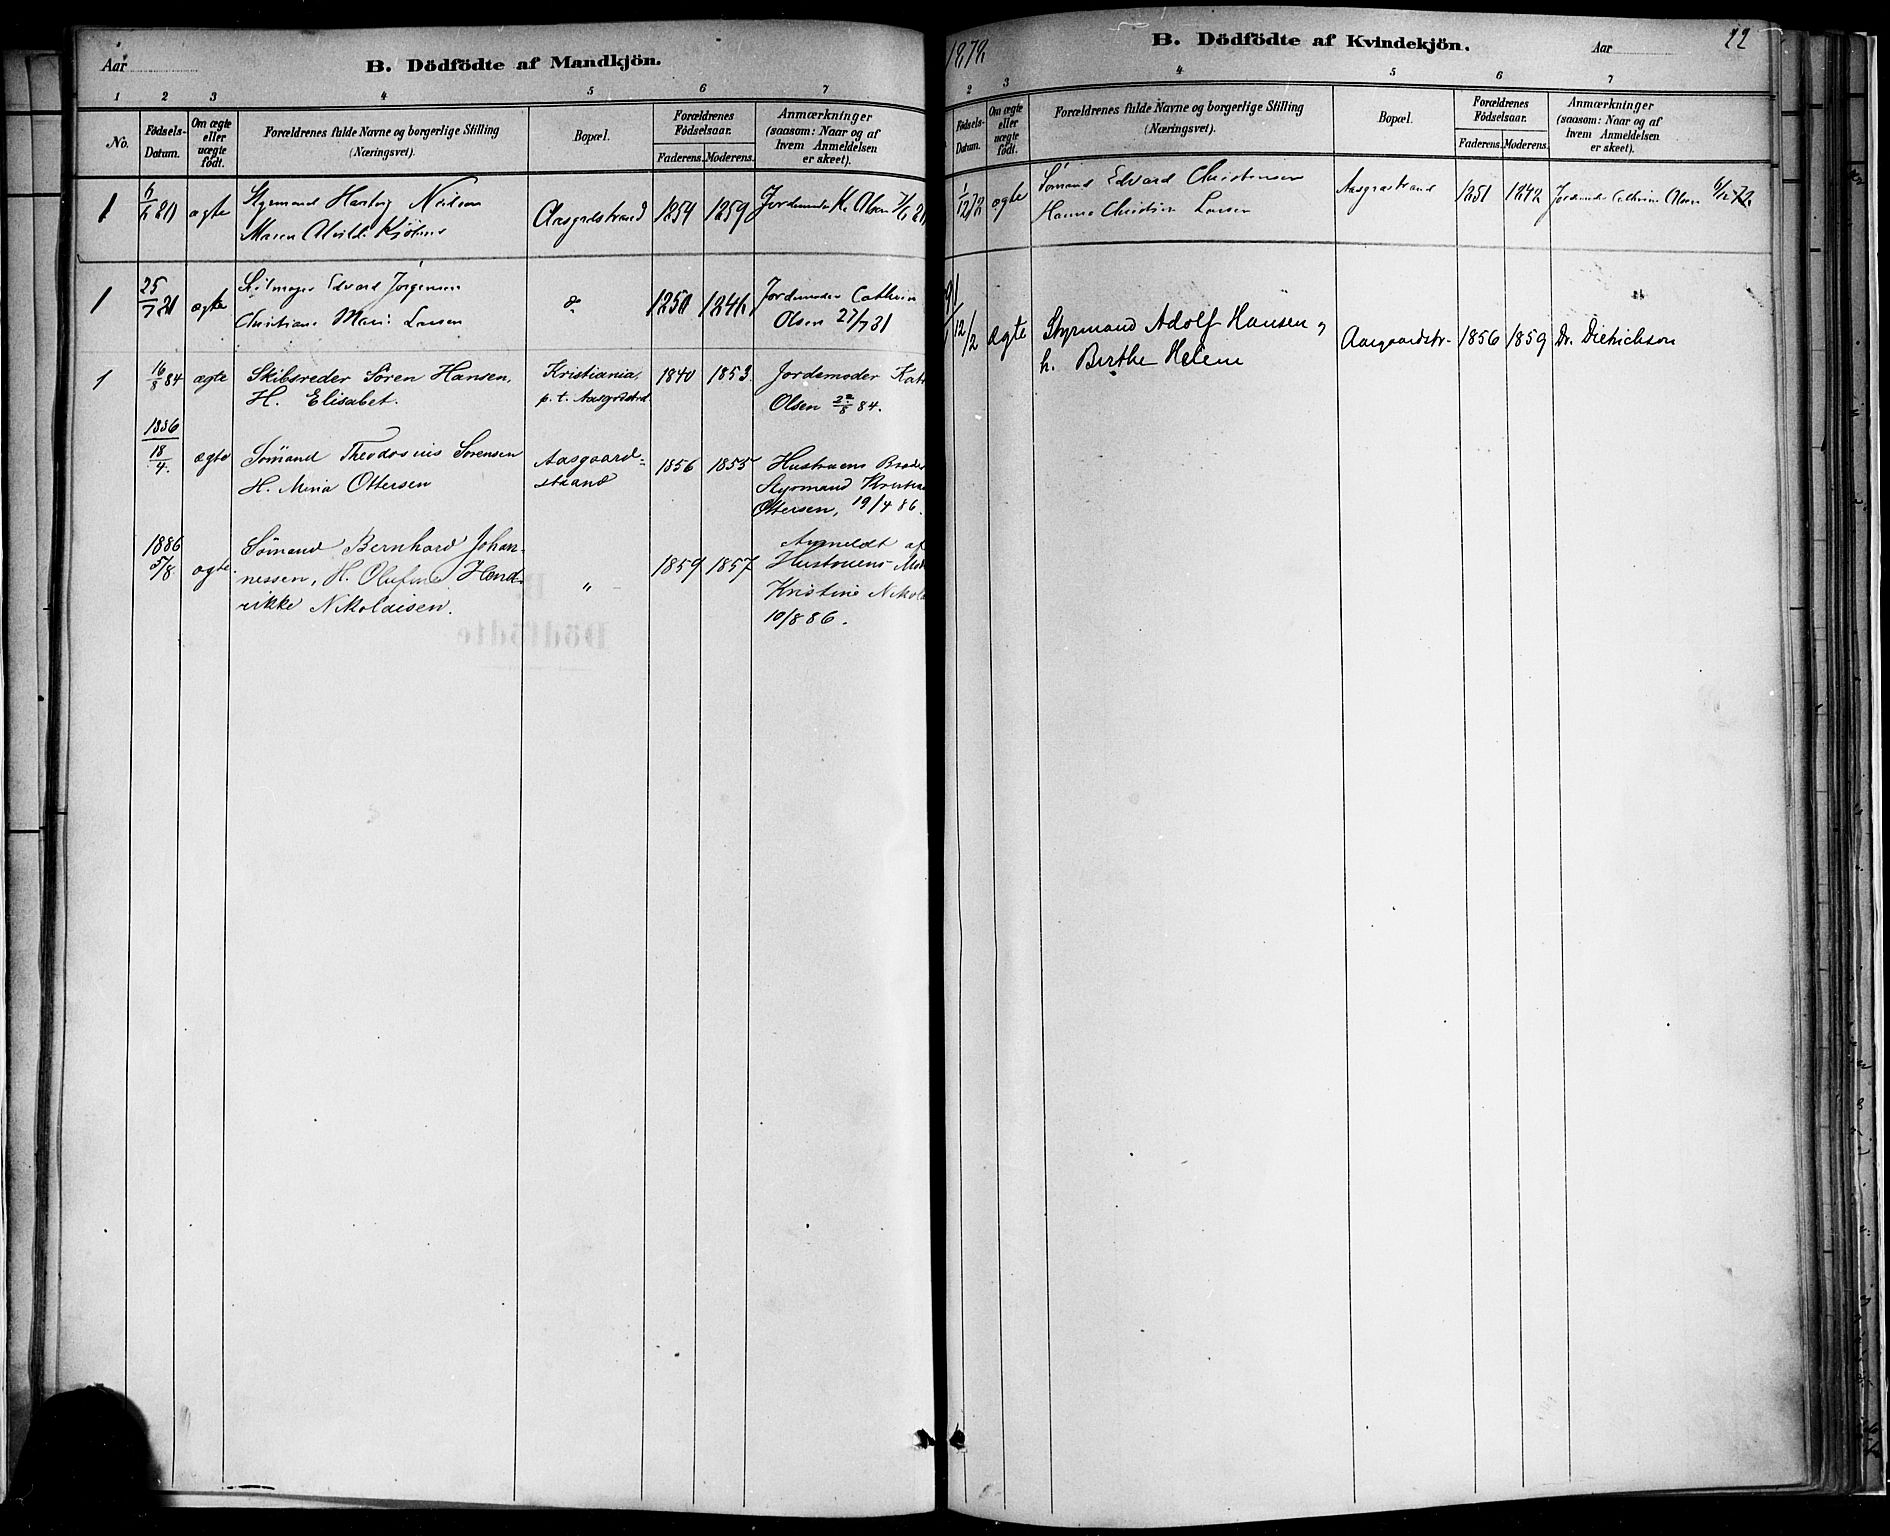 Aar
B. Dödfödte af Mandkjön.
1 2 3 4 5 6 7
No.
Födsels-Datum.
Om ægte eller uægte födt.
Forældrenes fulde Navne og borgerlige Stilling
(Næringsvei).
Bopæl.
Forældrenes Födselsaar.
Faderens. Moderens.
Anmærkninger
(saasom: Naar og af
hvem Anmeldelsen
er skeet).
1 6/6 80 ægte Styrmand Hartvig Nielsen Aasgrdstrand 1854 1859 Jordemoder K. Olsen 7/6 80
Maren
1 25/7 81 ægte Edvard Jørgensen 1850 1846 Jordemoder Cathrin
Christiane Marie Larsen Olsen 27/7 81
1 16/8 84 ægte Skibsreder Sören Hansen, Kristiania, 1840 1853. Jordemoder Kath
H. Elisabet. p. t. Aasgrdstrd. Olsen 22/8 84.
1886
18/4. ægte Sömand Theodosius Sörensen Aasgaard- 1856 1855 Hustruens Broder
H. Mina Ottersen strand Styrmand Kristia
Ottersen, 19/4 86.
1886 Sömand Bernhard Johan- Anmeldt af
5/8. ægte. nessen, H. Olufine Hend- " 1859 1857 Hustruens Mo
rikke Nikolaisen. Kristine Nikola
10/8 86.
1878
B. Dödfödte af Kvindekjön.
Aar
22
2 3 4 5 6 7
Födsels-Datum.
Om ægte eller uægte födt.
Forældrenes fulde Navne og borgerlige Stilling
(Næringsvei).
Bopæl.
Forældrenes Födselsaar.
Faderens. Moderens.
Anmærkninger
(saasom: Naar og af
hvem Anmeldelsen
er skeet).
1/12 78 ægte Sömand Edvard Christensen Aasgrdstrand 1851 1848 Jordemoder Cathrine Olsen 6/12 78
Hanne Christine Larsen
91
12/2 ægte Styrmand Adolf Hansen, Aasgaardstr. 1856 1859 Dr. Dietrichson
h. Berthe Helene